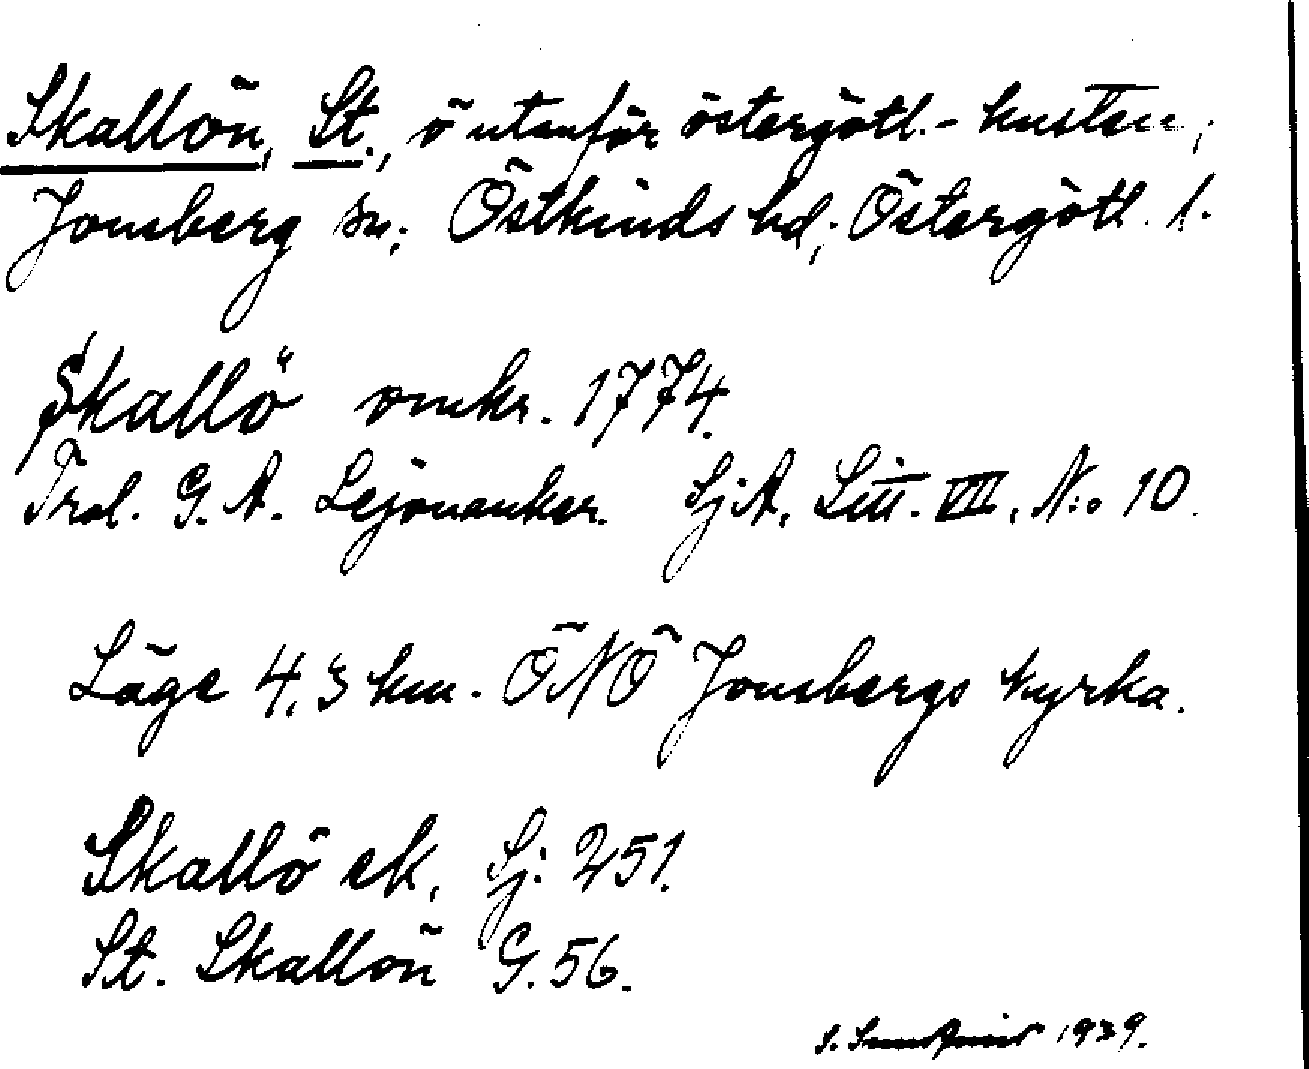 Skallön, St., ö utanför östergötl.-kusten,
Jonsberg sn; Östkinds hd; Östergötl. l.
Skallö omkr. 1774.
Trol. G. A. Lejonanker. Sj.A. Litt. VIII, N:o 10.
Läge 4,3 km. ÖNÖ Jonsbergs kyrka.
Skallö ek. Sj. 251.
St. Skallön G. 56.
S. 1939.